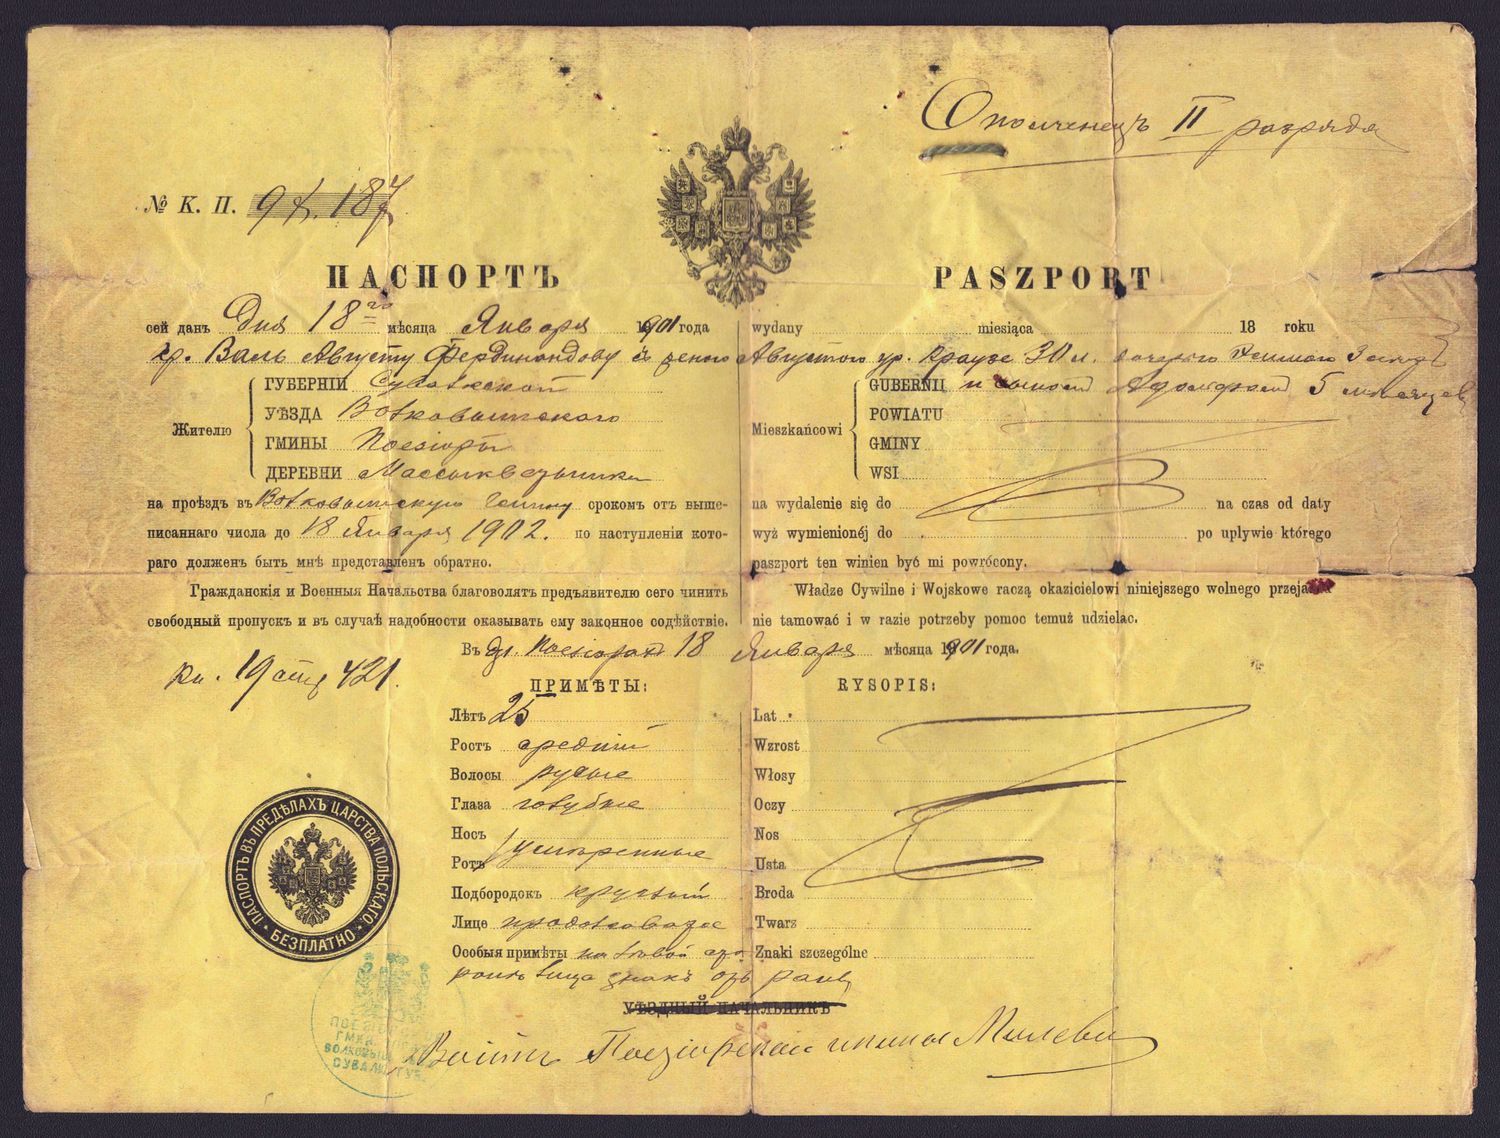 Ополченецъ II разряда
№ К. П. 187
ПАСПОРТЪ
сей данъ Дня 18го мѣсяца Января 1901 года
кр. Валь Августу Фердинандову съ женою Августою ур. Краузе 30 л.
Жителю
ГУБЕРНІИ Сувалкской
УѢЗДА Волковышскаго
ГМИНЫ Поезіоры
ДЕРЕВНИ
на проѣздъ въ Волковышскую гмину срокомъ отъ выше-
писаннаго числа до 18 Января 1902. по наступленіи кото-
раго долженъ быть мнѣ представленъ обратно.
Гражданскія и Военныя Начальства благоволятъ предъявителю сего чинить
свободный пропускъ и въ случаѣ надобности оказывать ему законное содѣйствіе.
PASZPORT
wydany miesiąca 18 roku
Mieszkańcowi
GUBERNII 5 месяцев
POWIATU
GMINY
WSI
na wydalenie się do na czas od daty
wyż wymienionéj do po upływie którego
paszport ten winien być mi powrócony.
Władze Cywilne i Wojskowe raczą okazicielowi niniejszego wolnego przejazdu
nie tamować i w razie potrzeby pomoc temuż udzielac.
Въ д. Поезіорахъ 18 Января мѣсяца 1901 года.
Кн. 19 стр 421.
ПРИМѢТЫ:
Лѣтъ 25
Ростъ средній
Волосы русые
Глаза голубые
Носъ
Ротъ умѣренные
Подбородокъ круглый
Лице продолговатое
Особыя примѣты на лѣвой сто
ронѣ лица знакъ отъ раны
RYSOPIS:
Lat
Wzrost
Włosy
Oczy
Nos
Usta
Broda
Twarz
Znaki szczególne
УѢЗДНЫЙ НАЧАЛЬНИКЪ
Войтъ Поезіорской гмины
ПАСПОРТЪ ВЪ ПРЕДѢЛАХЪ ЦАРСТВА ПОЛЬСКАГО.
БЕЗПЛАТНО